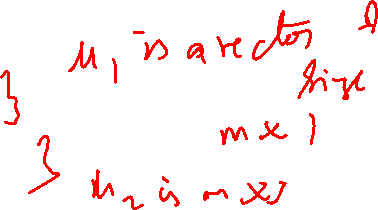 } μ₁ is a vector of
size
m x 1
} μ₂ is n x